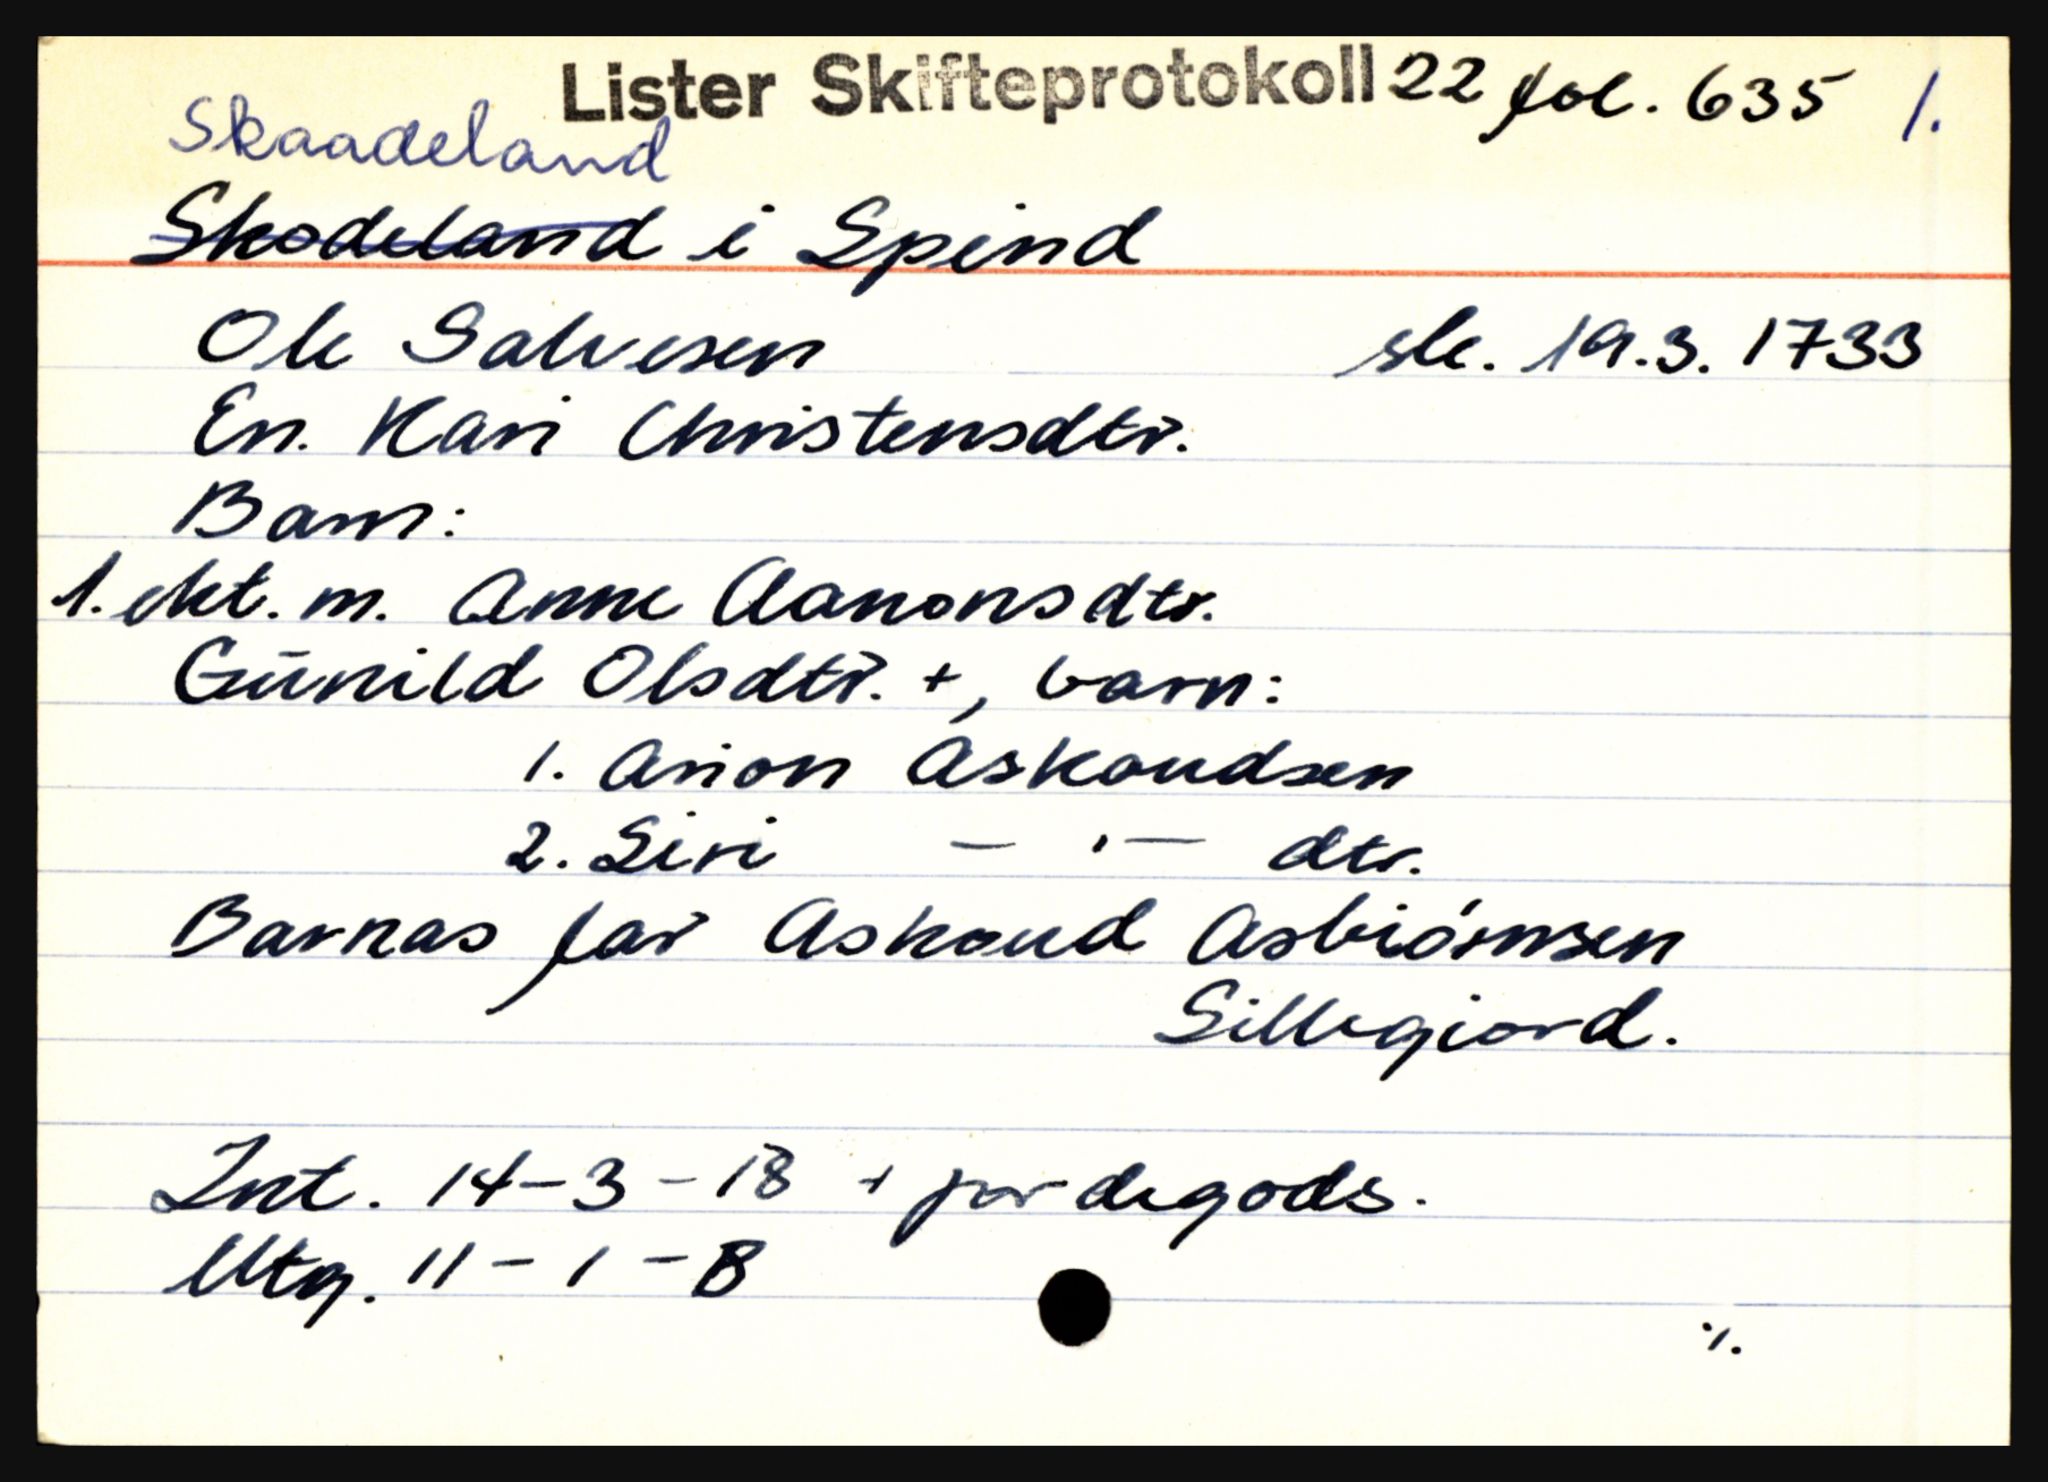 Lister Skifteprotokoll 22 fol. 635 1.
Skaadeland
Skodeland i Spind
Ole Salvesen sk. 19.3. 1733
En. Kari Christensdtr.
Barn:
1. ekt. m. Anne Aanonsdtr.
Gunild Olsdtr. +, barn:
1. Arion Askoudsen
2. Siri — " — dtr.
Barnas far Askoud Asbiórnsen
Sillegiord.
Int. 14 - 3 - 18 + jordegods.
Utg. 11 - 1 - 8
·/.